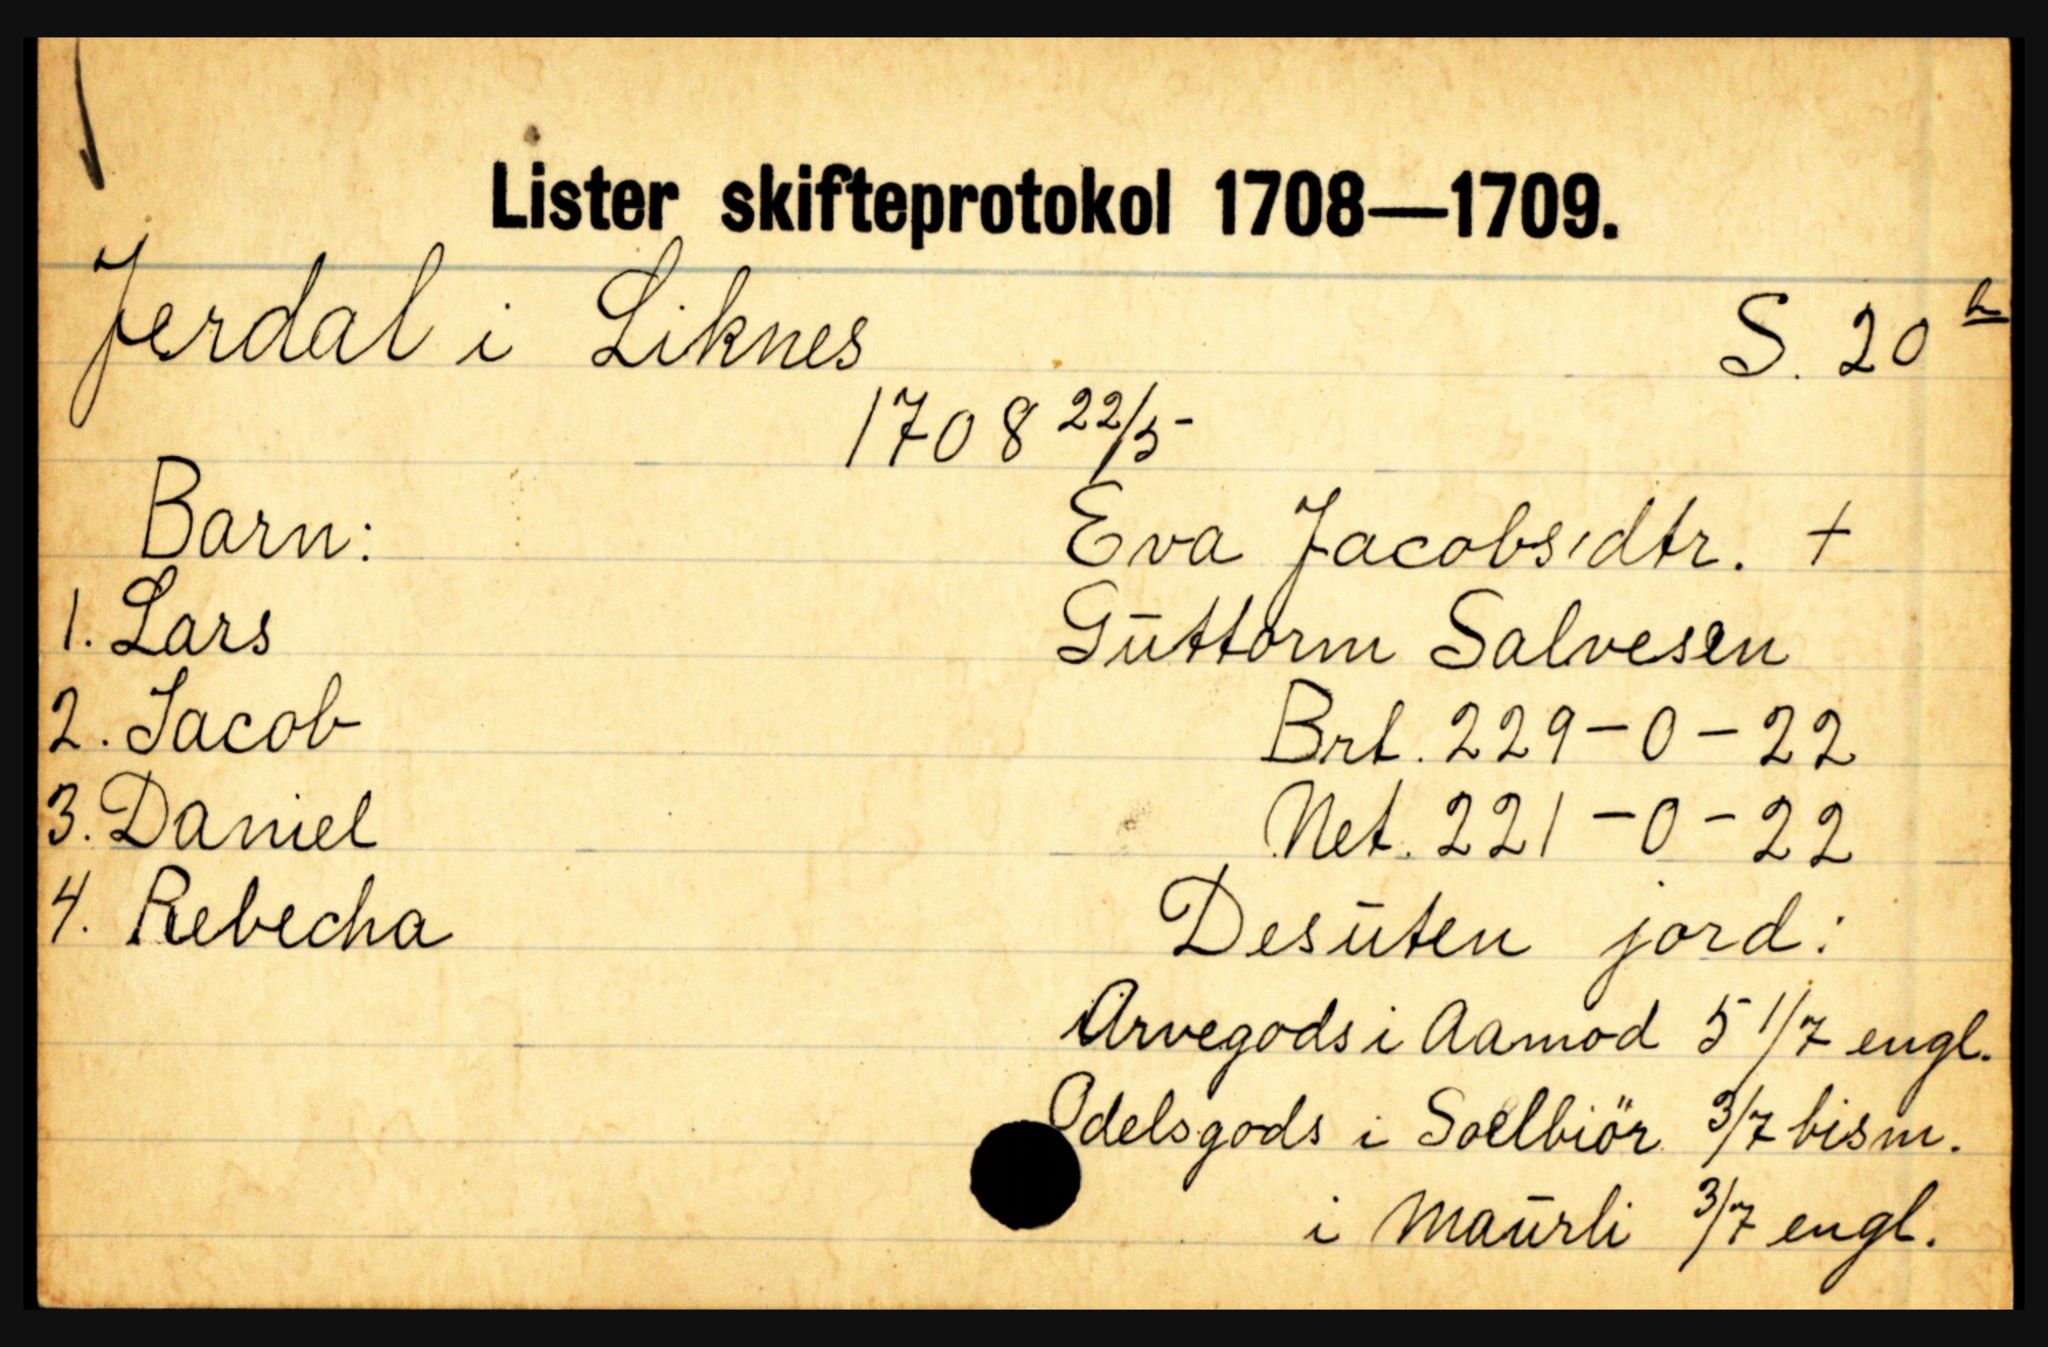 Lister skifteprotokol 1708—1709.
Jerdal i Liknes S. 20 b
1708 22/5
Barn: Eva Jacobsdtr. +
1. Lars Guttorm Salvesen
2. Jacob Brt. 229-0-22
3. Daniel Net. 221-0-22
4. Rebecha Desuten jord:
Arvegods i Aamod 5 1/7 engl.
Odelsgods i Soelbiör 3/7 bism.
i Maurli 3/7 engl.